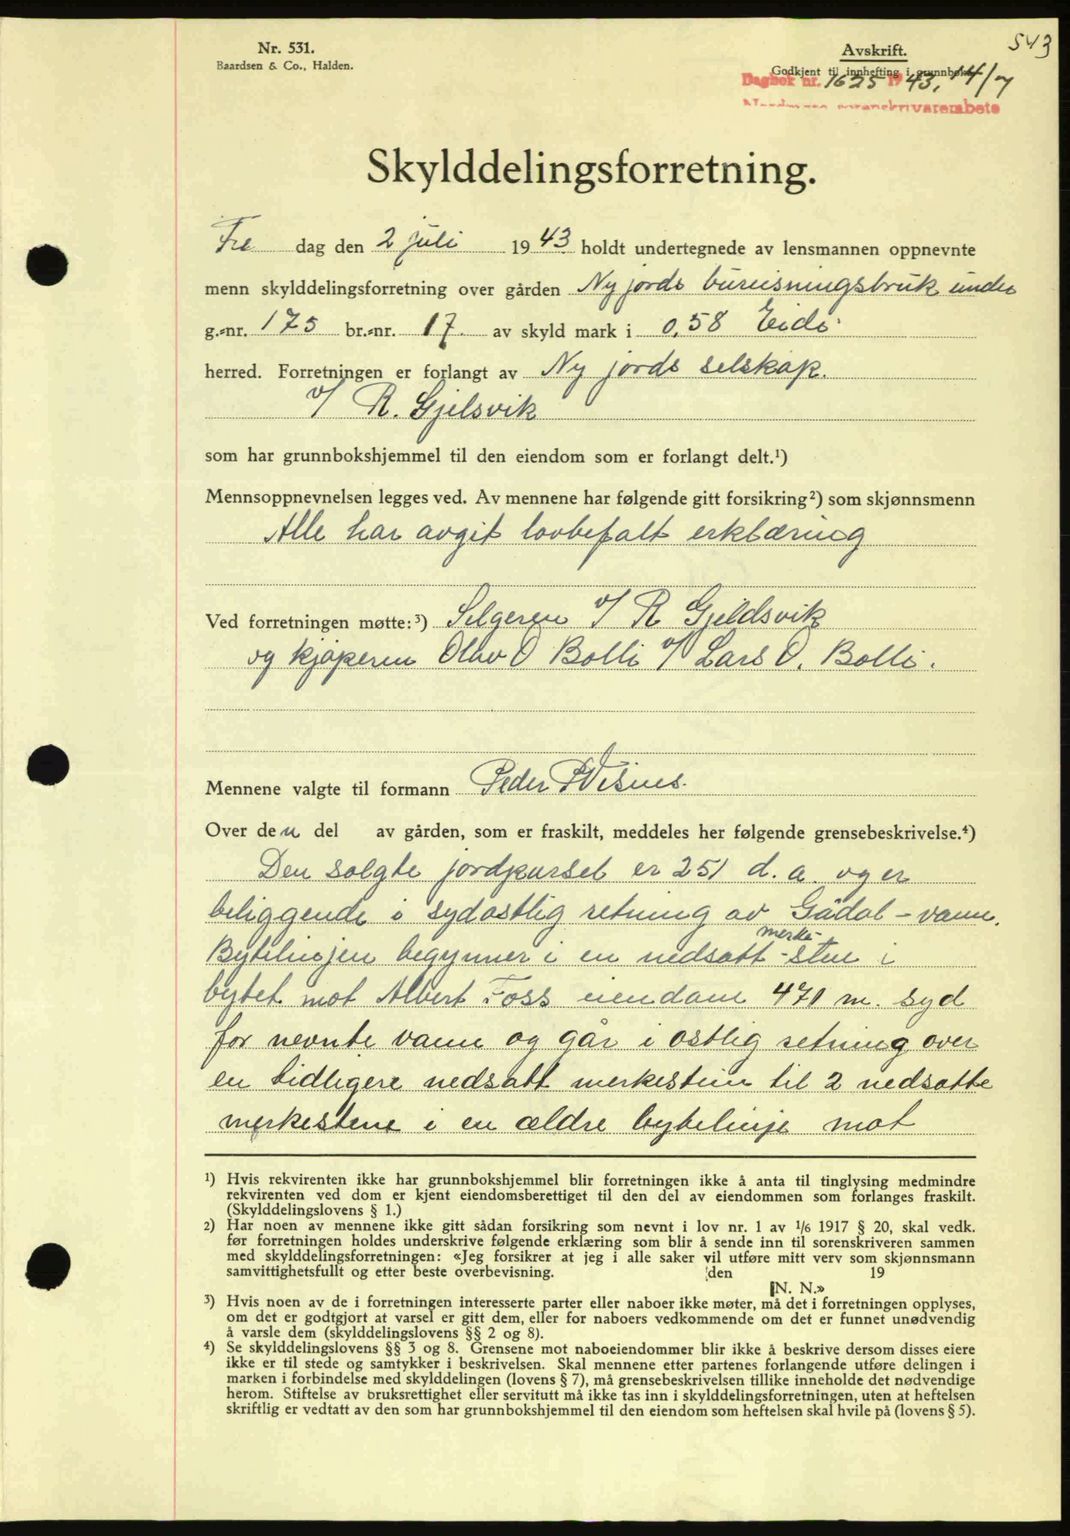 543
Nr. 531.
Baardsen & Co., Halden.
Avskrift.
Godkjent til innhefting i grunnboken
Dagbok nr. 1625 1943, 14/7
Nordmøre sorenskrivarembete
Skylddelingsforretning.
Fre dag den 2 juli 1943 holdt undertegnede av lensmannen oppnevnte
menn skylddelingsforretning over gården Ny jords bureisningsbruk under
g.-nr. 175 br.-nr. 17 av skyld mark i 0,58 Eide
herred. Forretningen er forlangt av Ny jords selskap.
v/ R. Gjelsvik
som har grunnbokshjemmel til den eiendom som er forlangt delt.¹)
Mennsoppnevnelsen legges ved. Av mennene har følgende gitt forsikring²) som skjønnsmenn
Alle har avgit lovbefalt erklæring
Ved forretningen møtte:³) Selgeren v/ R Gjeldsvik
og kjøperen Olav O Bolli v/ Lars O. Bolli.
Mennene valgte til formann Peder P Visnes.
Over den del av gården, som er fraskilt, meddeles her følgende grensebeskrivelse.⁴)
Den solgte jordparsel er 251 d. a. og er
beliggende i sydostlig retning av Gådal-vann.
Bytelinjen begynner i en nedsatt merke-sten i
bytet mot Albert Foss eiendom 471 m. syd
for nevnte vann og går i østlig retning over
en tidligere nedsatt merkestein til 2 nedsatte
merkestene i en ældre bytelinje mot
¹) Hvis rekvirenten ikke har grunnbokshjemmel blir forretningen ikke å anta til tinglysing medmindre
rekvirenten ved dom er kjent eiendomsberettiget til den del av eiendommen som forlanges fraskilt.
(Skylddelingslovens § 1.)
²) Har noen av mennene ikke gitt sådan forsikring som nevnt i lov nr. 1 av 1/6 1917 § 20, skal vedk.
før forretningen holdes underskrive følgende erklæring som blir å sende inn til sorenskriveren sammen
med skylddelingsforretningen: «Jeg forsikrer at jeg i alle saker vil utføre mitt verv som skjønnsmann
samvittighetsfullt og etter beste overbevisning. den 19
N. N.»
³) Hvis noen av de i forretningen interesserte parter eller naboer ikke møter, må det i forretningen opplyses,
om det er godtgjort at varsel er gitt dem, eller for naboers vedkommende om det er funnet unødvendig
å varsle dem (skylddelingslovens §§ 2 og 8).
⁴) Se skylddelingslovens §§ 3 og 8. Grensene mot naboeiendommer blir ikke å beskrive dersom disses eiere
ikke er til stede og samtykker i beskrivelsen. Skal mennene etter partenes forlangende utføre delingen i
marken i forbindelse med skylddelingen (lovens § 7), må grensebeskrivelsen tillike inneholde det nødvendige
herom. Stiftelse av bruksrettighet eller servitutt må ikke tas inn i skylddelingsforretningen, uten at heftelsen
skriftlig er vedtatt av den som har grunnbokshjemmel til den eiendom som heftelsen skal hvile på (lovens § 5).